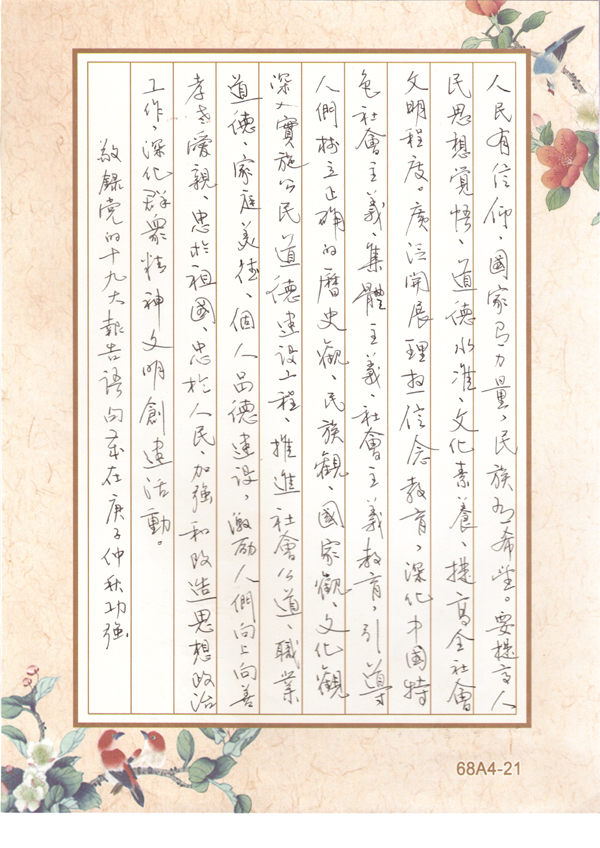 人民有信仰、國家有力量，民族有希望。要提高人
民思想覺悟、道德水准、文化素養、提高全社會
文明程度。廣泛開展理想信念教育，深化中國特
色社會主義、集體主義、社會主義教育，引導
人們树立正确的曆史觀、民族觀、國家觀、文化觀
深入實施公民道德建设工程、推進社會公道、職業
道德、家庭美德、個人品德建设，激励人們向上向善
孝老愛親、忠於祖國、忠於人民、加強和改造思想政治
工作，深化群眾精神文明創建活動。
敬録党的十九大報告語句 在庚子仲秋功強
68A4-21